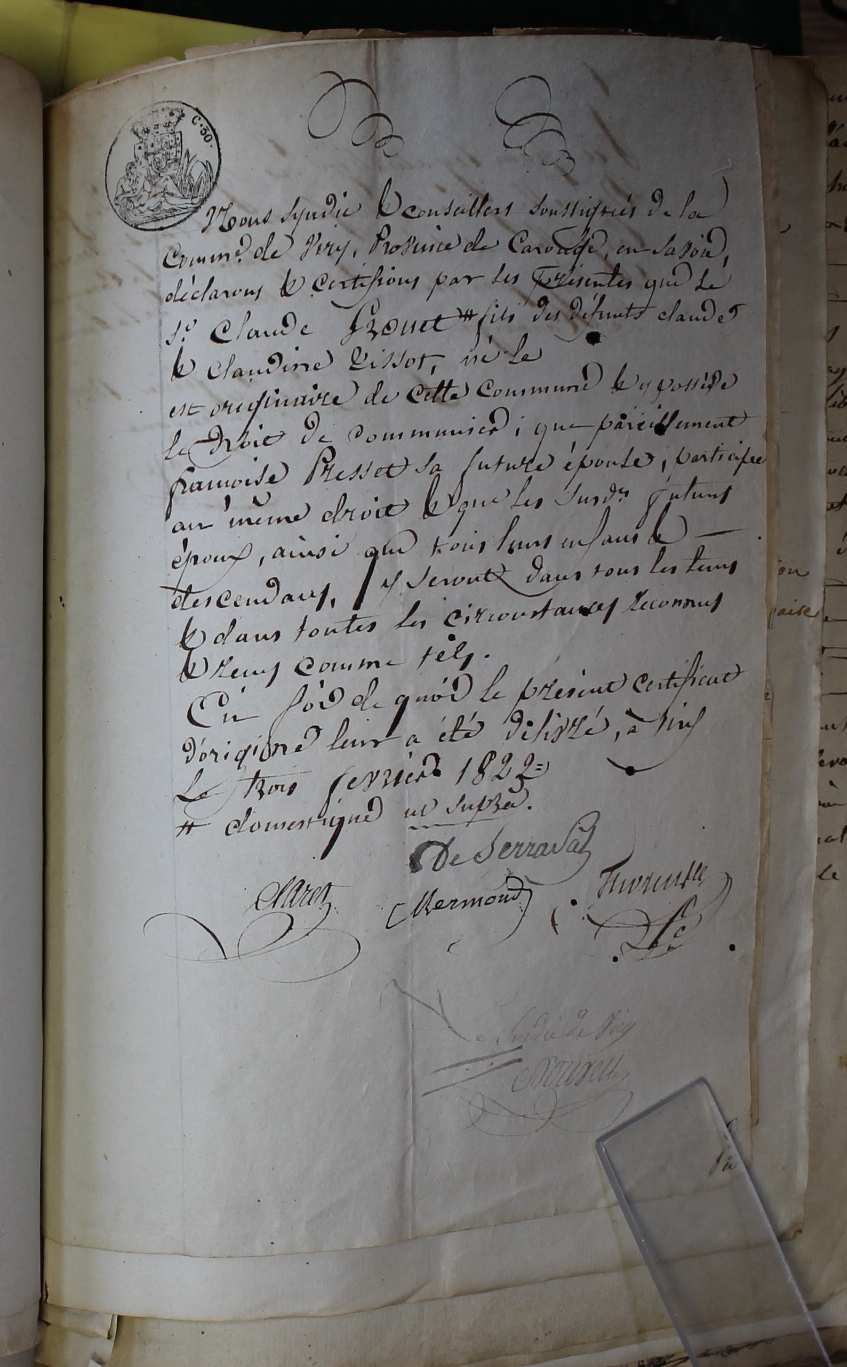 C. 50.
Nous syndic & conseillers soussignés de la
Commne. de Viry, Province de Carouge, en Savoie,
déclarons & certifions par les Présentes que le
Sr. Claude fils des défunts claude
& claudine Vissot, né le
est originaire de cette commune & y possède
le droit de communier ; que pareillement
françoise Pressot sa future épouse, participe
au même droit & que les susds. futurs
époux, ainsi que tous leurs enfans &
descendans, y seront dans tous les tems
& dans toutes les circonstances reconnus
& tenus comme tels.
En foi de quoi le présent certificat
d'origine leur a été délivré, à Viry
Le trois fevrier 1822=
# domestique ut supra.
De Serraval
Claret Mermond
Syndic de Viry